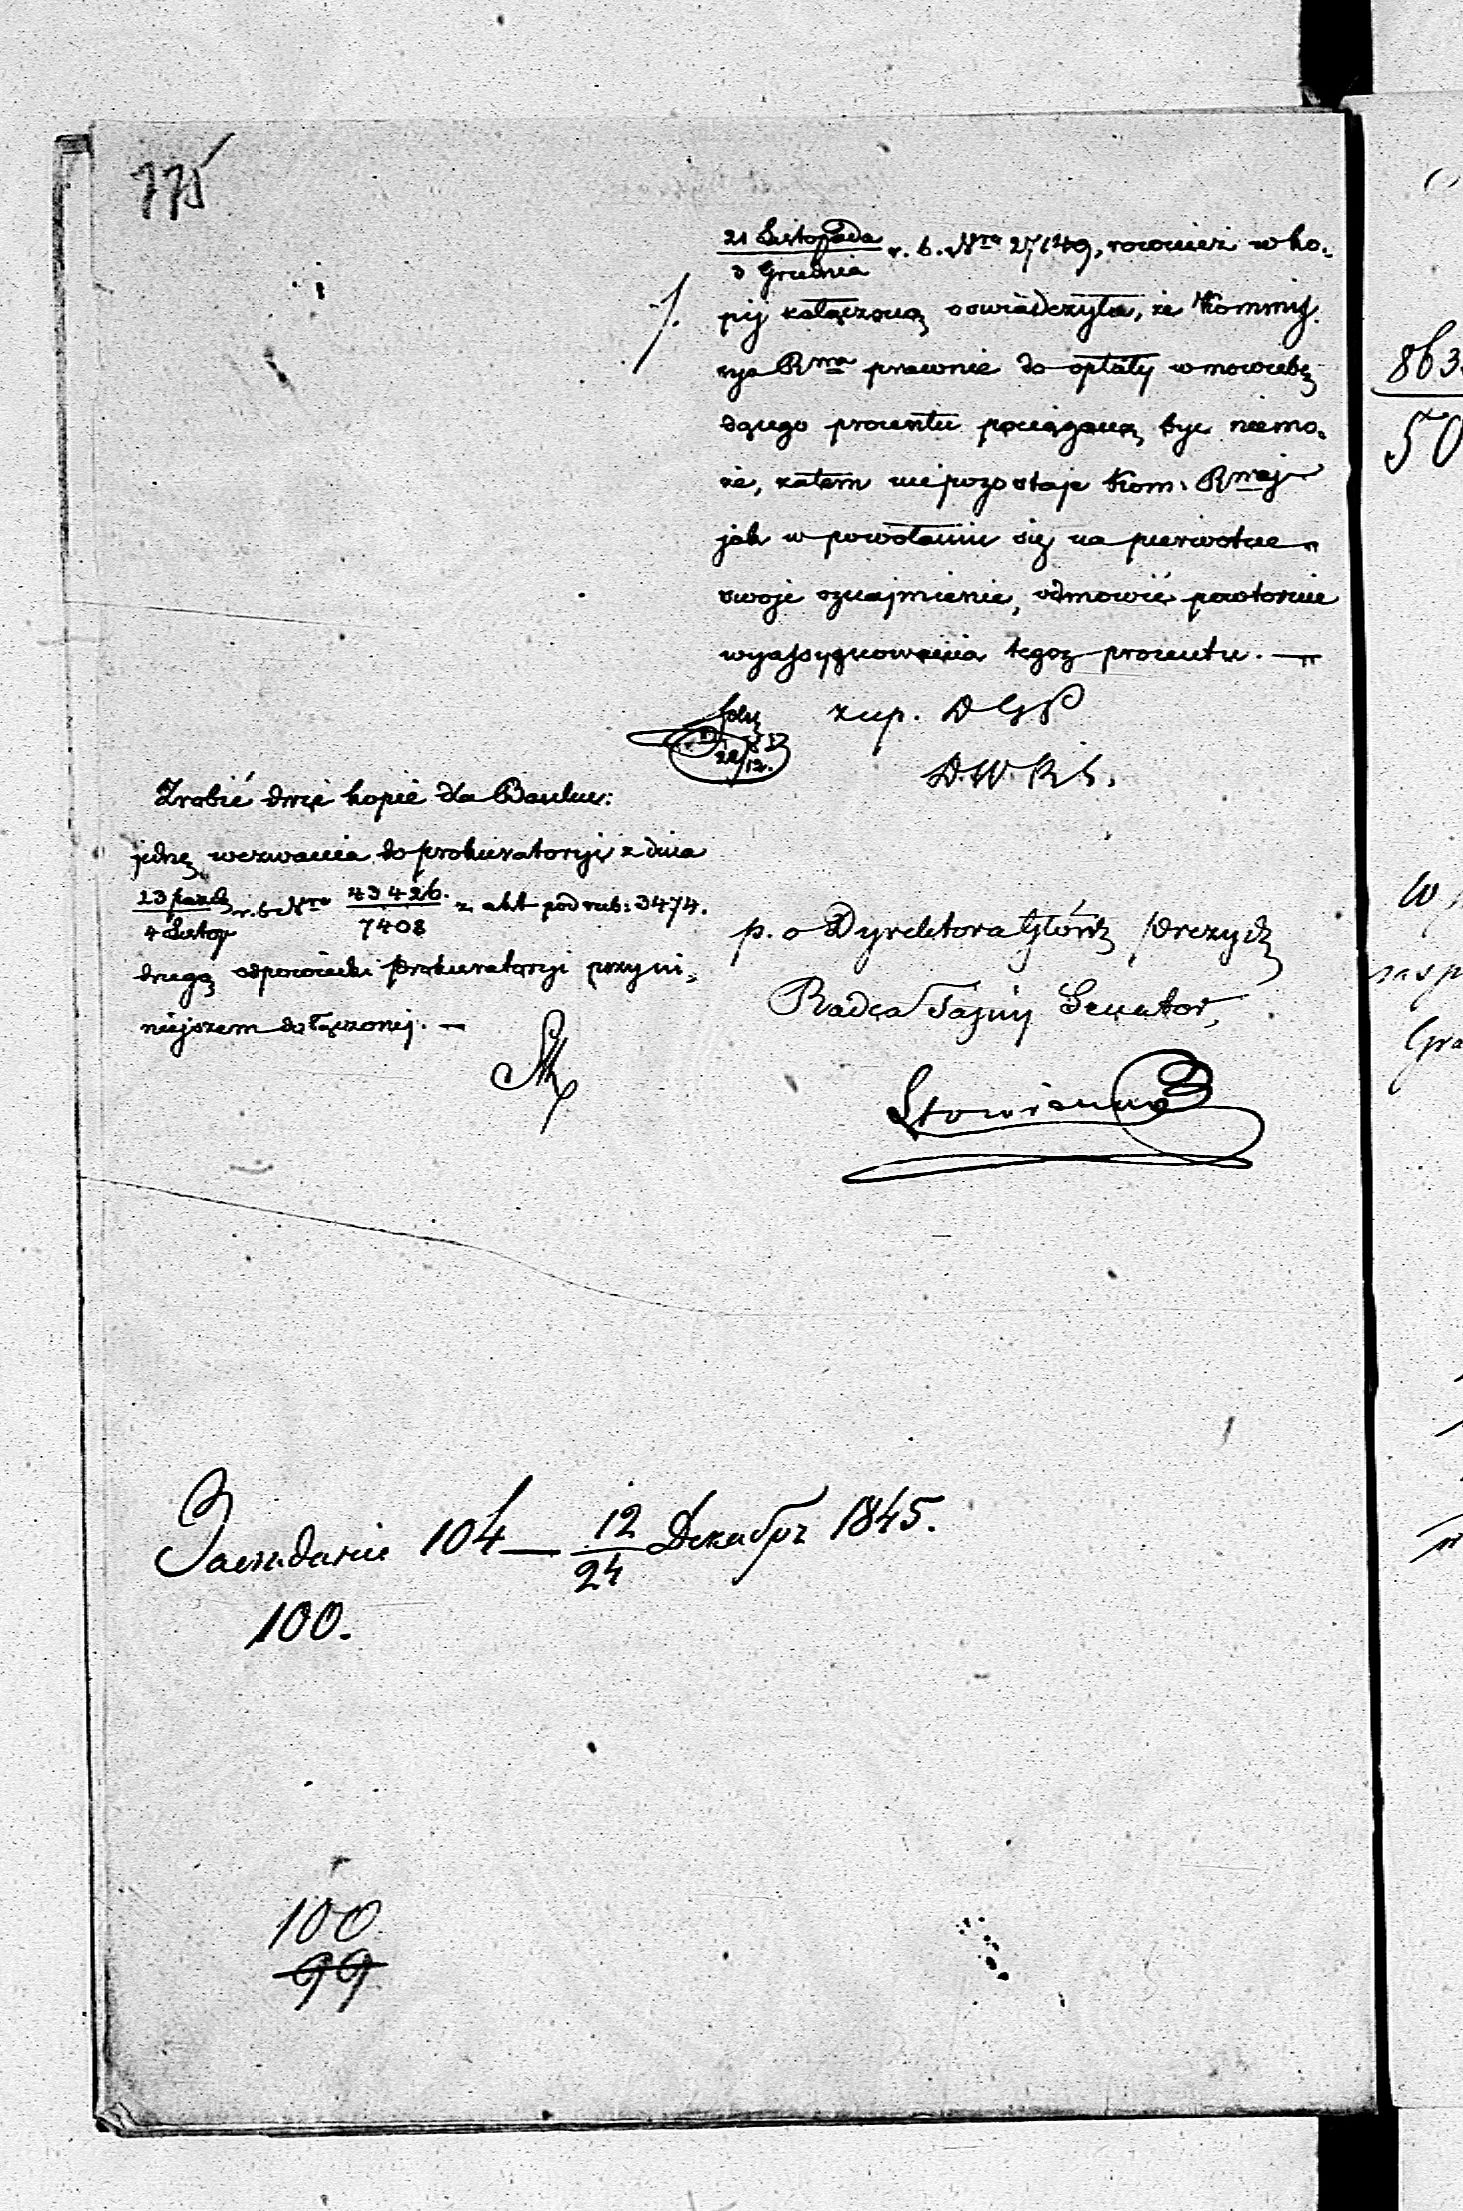 115
21 Listopada
3 Grudnia
r. b. Nro 27149, rownież w ko-
pij załączoną oswiadczyła, że Kommis-
sya Rwa prawnie do opłaty w mowie bę-
dącego procentu pociąganą być niemo-
że, zatem niepozostaje Kom: Rwej
jak w powołaniu się na pierwotne
swoje oznajmienie, odmowić powtornie
wyassygnowania tegoż procentu. —
zup. DGP
22/12.
D.W.R.S.
Zrobić dwie kopie dla Banku:
jednę wezwania do prokuratoryi z dnia
23 Pazdz
4 Listop
r. b. Nro 43426.
7408
z akt pod rub: 3474.
drugą odpowiedzi Prokuratoryi przy ni-
niejszem dołączonej. —
p. o Dyrektora Głów. Prezyd.
Radca Tajny Senator,
Засѣданіе 104 — 12/24 Декабря 1845.
100.
100
99
863
50
W
Gra